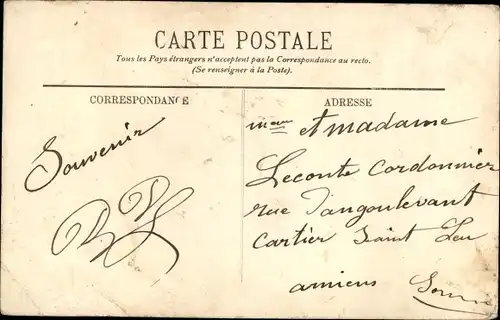 CARTE POSTALE
Tous les Pays étrangers n'acceptent pas la Correspondance au recto.
(Se renseigner à la Poste).
CORRESPONDANCE
Souvenir
ADRESSE
et madame
Leconte Cordonnier
rue d'angoulevant
cartier Saint Leu
amiens Somme